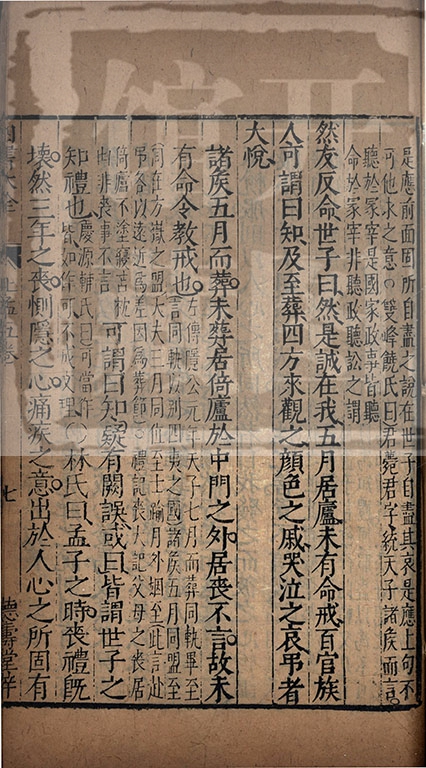 是應前面固所自盡之說在世子自盡其哀是應上句不
可他求之意○雙峰饒氏曰君薨君字統天子諸侯而言
聽於冡宰是國家政事皆聽
命於冡宰非聽政聽訟之謂
然友反命世子曰然是誠在我五月居廬未有命戒百官族
人可謂曰知及至葬四方來觀之顔色之戚哭泣之哀弔者
大悅
諸侯五月而葬未葬居倚廬於中門之外居喪不言故未
有命令教戒也
左傳隱公元年天子七月而葬同軌畢至
言同軌以別四夷之國諸侯五月同盟至
同在方嶽之盟大夫三月同位至士踰月外姻至此言赴
弔各以遠近爲差因爲葬節○禮記喪大記父母之喪居
倚廬不塗寢苫枕
凷非喪事不言
可謂曰知疑有闕誤或曰皆謂世子之
知禮也
慶源輔氏曰可當作
皆如作可不成文理
○林氏曰孟子之時喪禮旣
壞然三年之喪惻隱之心痛疾之意出於人心之所固有
七
德壽堂梓